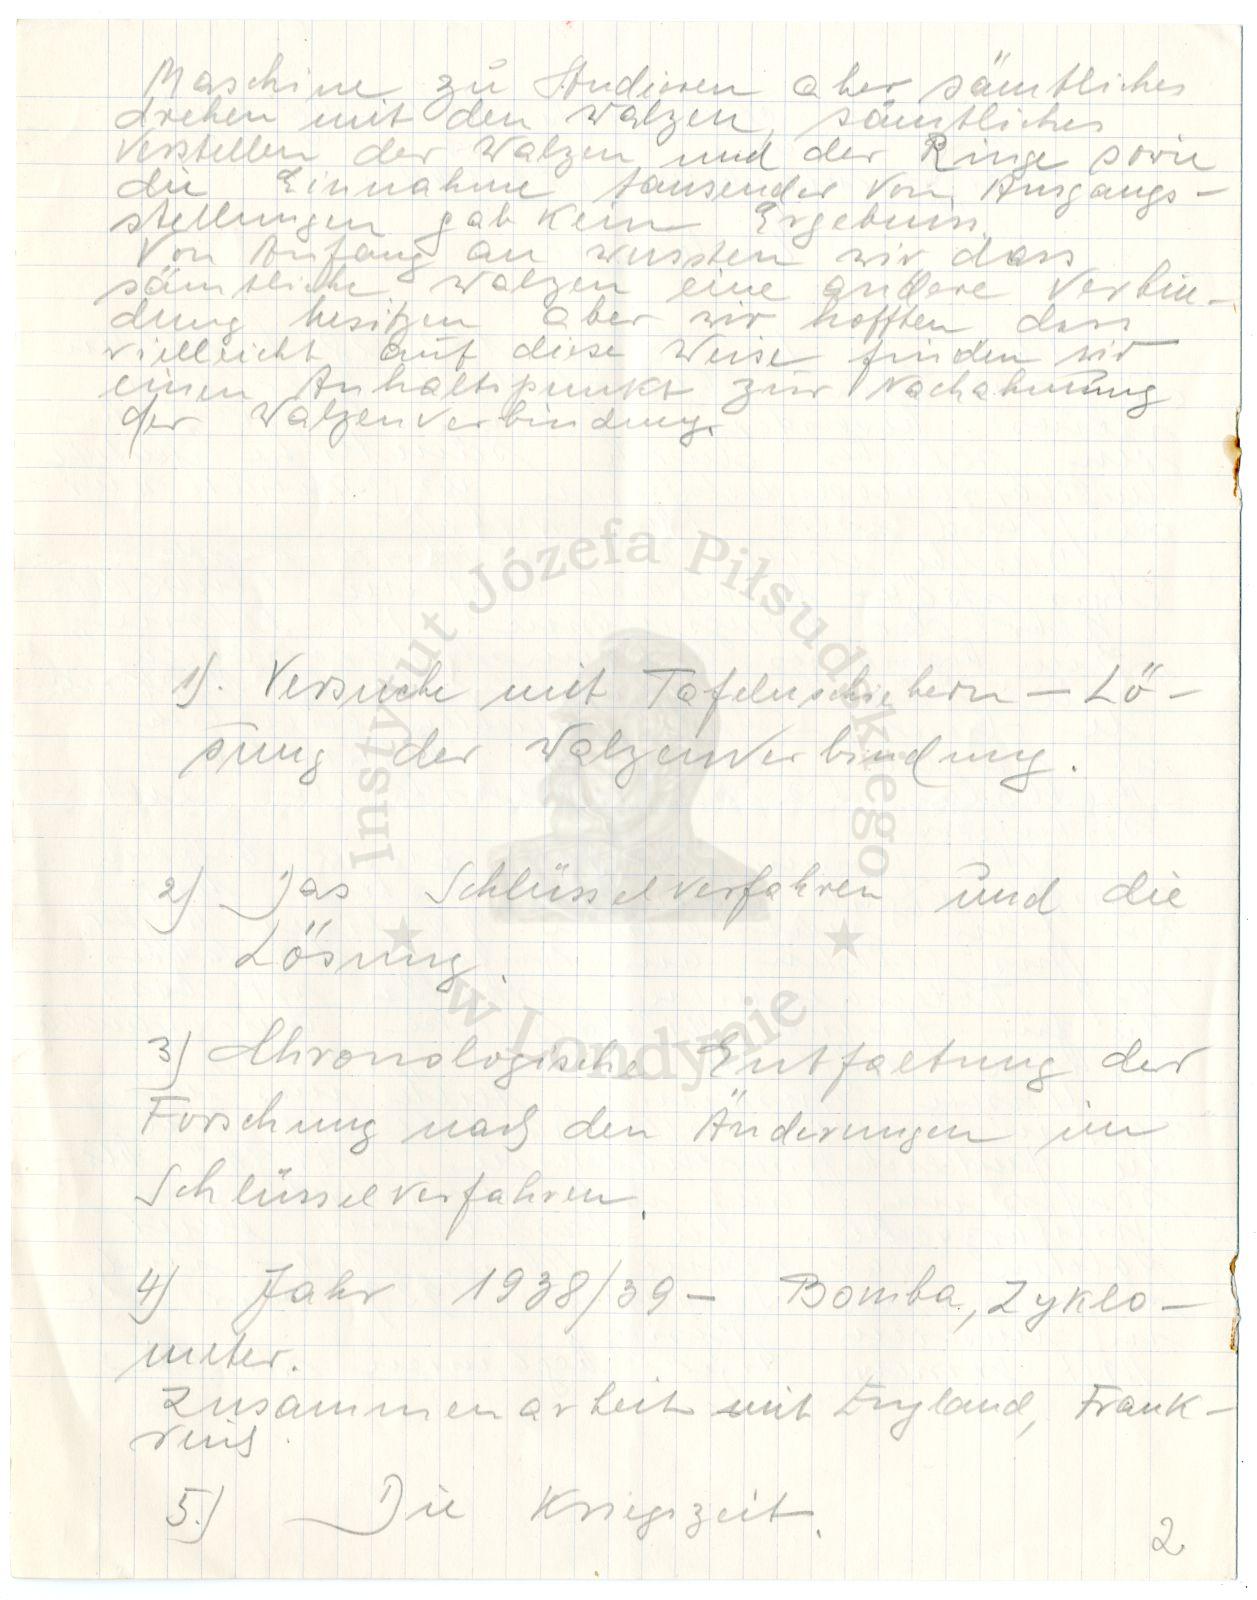 Maschine zu Studieren aber sämtliches
drehen mit den Walzen, sämtliches
Verstellen der Walzen und der Ringe sowie
die Einnahme tausender von Ausgangs-
stellungen gab kein Ergebnis.
Von Anfang an wussten wir dass
sämtliche Walzen eine andere Verbin-
dung besitzen aber wir hofften dass
vielleicht auf diese Weise finden wir
einen Anhaltspunkt zur Nachahmung
der Walzenverbindung.
Instytut Józefa Piłsudskiego
w Londynie
1). Versuche mit Tafelnschiebern – Lö-
sung der Walzenverbindung.
2) Das Schlüsselverfahren und die
Lösung.
3) Chronologische Entfaltung der
Forschung nach den Änderungen im
Schlüsselverfahren.
4) Jahr 1938/39 – Bomba, Zyklo-
meter.
Zusammenarbeit mit England, Frank-
reich.
5.) Die Kriegszeit.
2